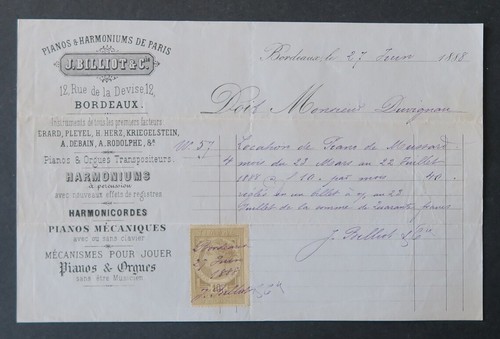 PIANOS & HARMONIUMS DE PARIS
J. BILLIOT & Cie
12, Rue de la Devise, 12,
BORDEAUX.
Instruments de tous les premiers facteurs
ERARD, PLEYEL, H. HERZ, KRIEGELSTEIN,
A. DEBAIN, A. RODOLPHE, &a.
Pianos & Orgues Transpositeurs.
HARMONIUMS
à percussion
avec nouveaux effets de registres
HARMONICORDES
PIANOS MÉCANIQUES
avec ou sans clavier
MÉCANISMES POUR JOUER
Pianos & Orgues
sans être Musicien
Bordeaux, le 27 Juin 1888
Doit Monsieur Duvignau
No 57 Location de Piano de Mussard
4 mois du 23 Mars au 22 Juillet
1888 à f 10. par mois 40
réglés en un billet à du 23
Juillet de la somme de quarante francs
J. Billiot & Cie
Bordeaux
27 Juin
1888
J. Billiot & Cie